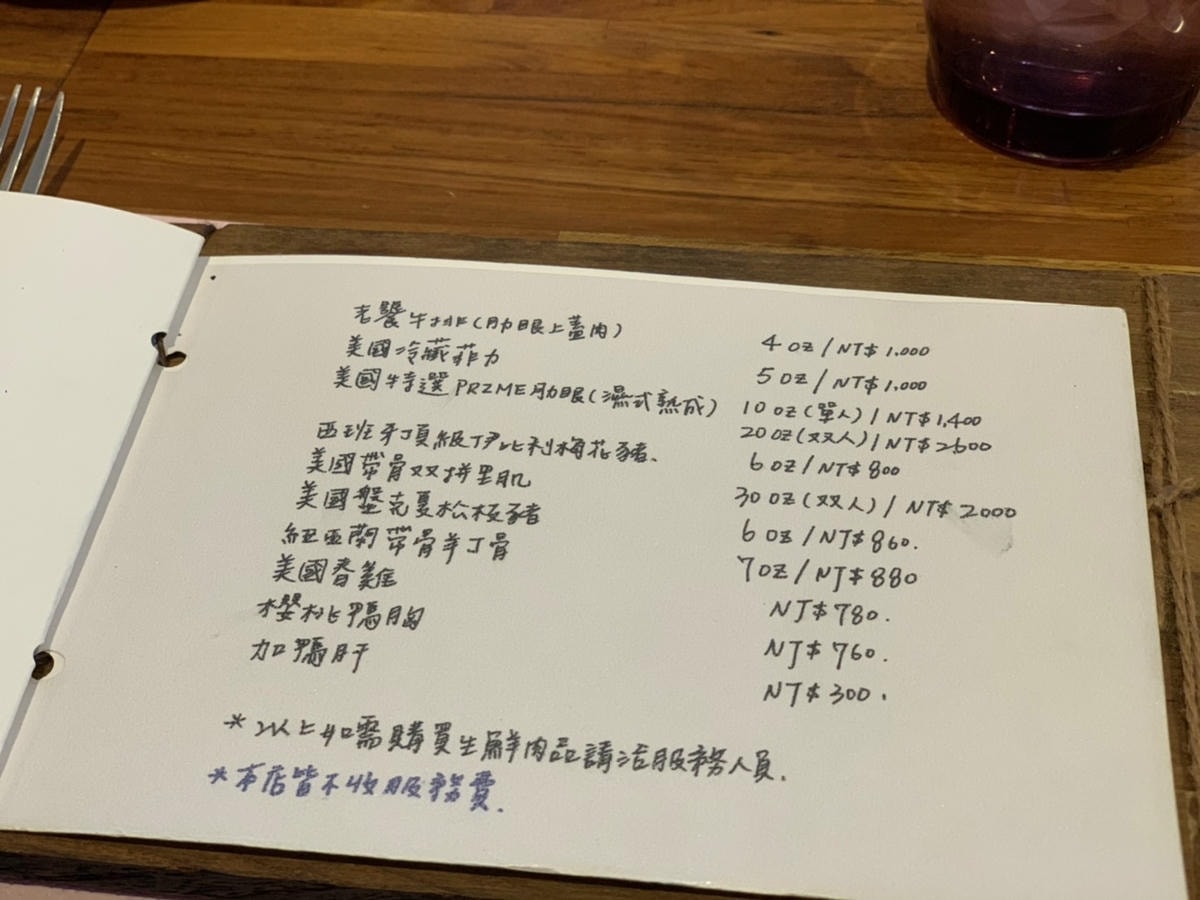 老饕牛排(肋眼上蓋肉) 4 oz / NT$ 1.000
美國冷藏菲力 5 oz / NT$ 1,000
美國特選 PRIME 肋眼(濕式熟成) 10 oz (單人) / NT$ 1,400
20 oz (双人) / NT$ 2600
西班牙頂級伊比利梅花豬. 6 oz / NT$ 800
美國帶骨双拼里肌 30 oz (双人) / NT$ 2000
美國盤克夏松板豬 6 oz / NT$ 860.
紐西蘭帶骨羊丁骨 7 oz / NT$ 880
美國春雞 NT$ 780.
櫻桃鴨胸 NT$ 760.
加鴨肝 NT$ 300.
*以上如需購買生鮮肉品請洽服務人員.
*本店皆不收服務費.